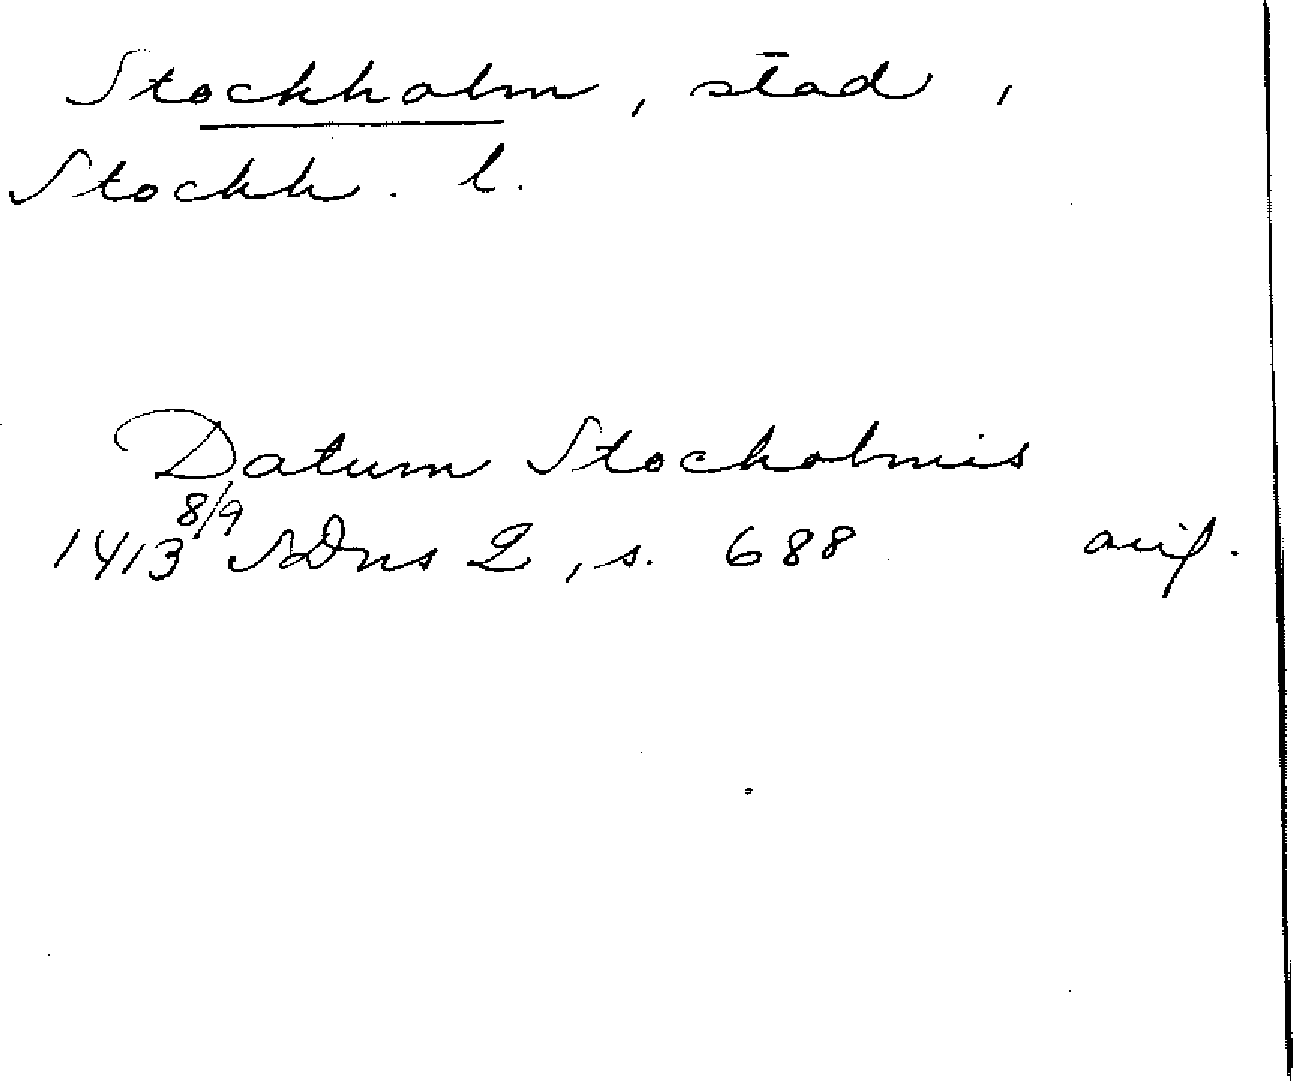 Stockholm, stad,
Stockh. l.
Datum Stocholmis
1413 8/9 SDns 2, s. 688 avs.